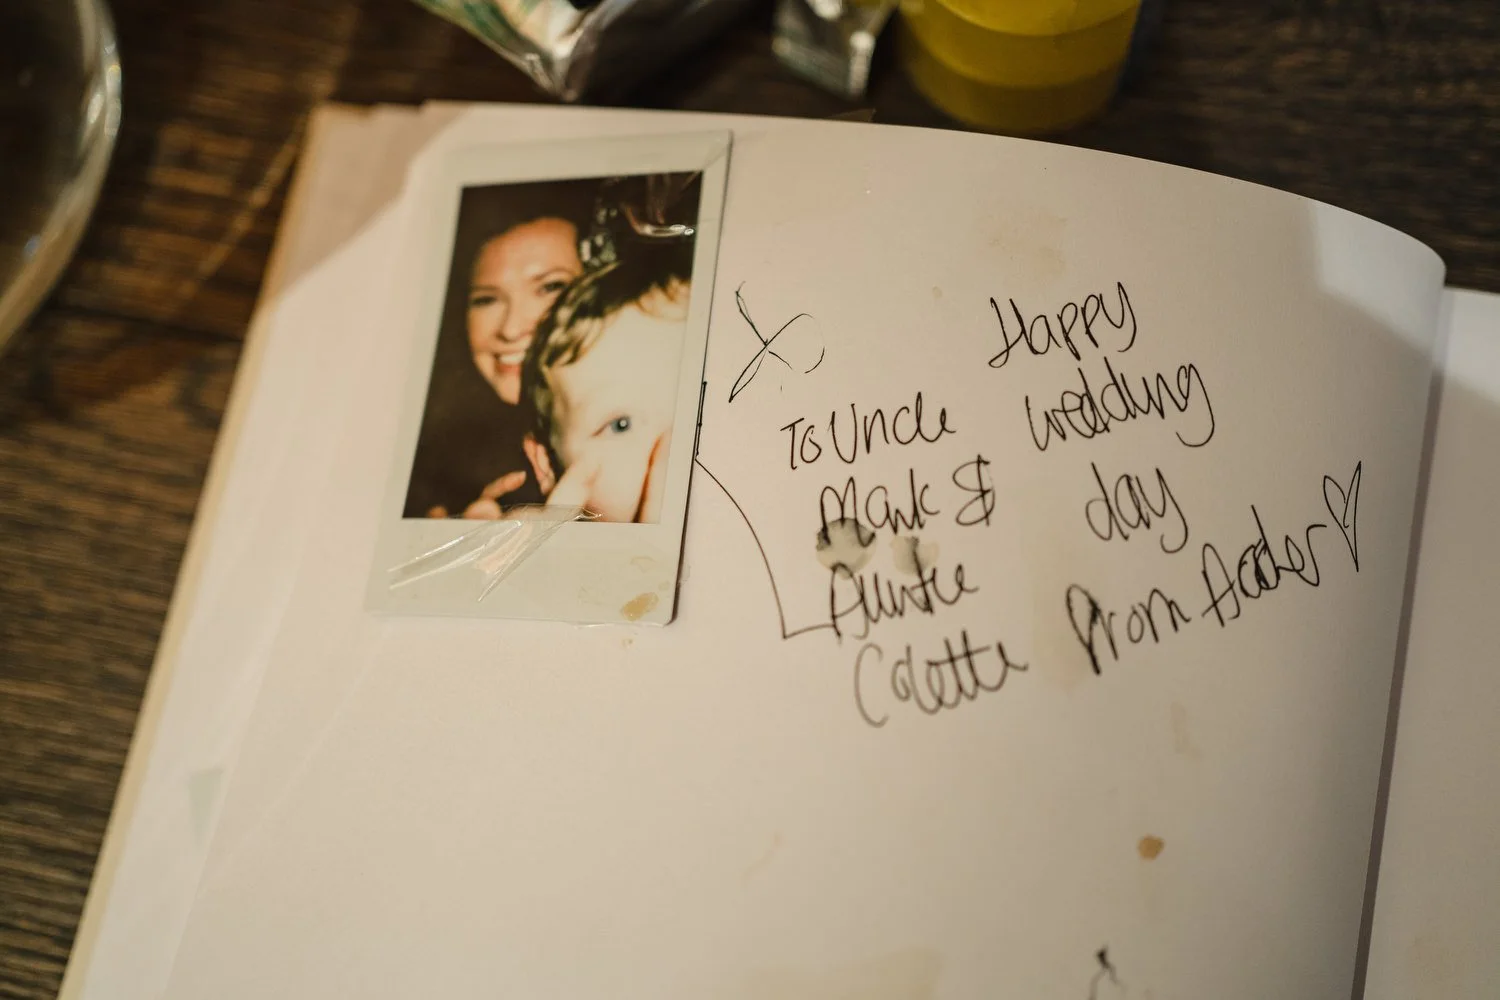 To Uncle
Mark &
Auntie
Colette
Happy
wedding
day
From